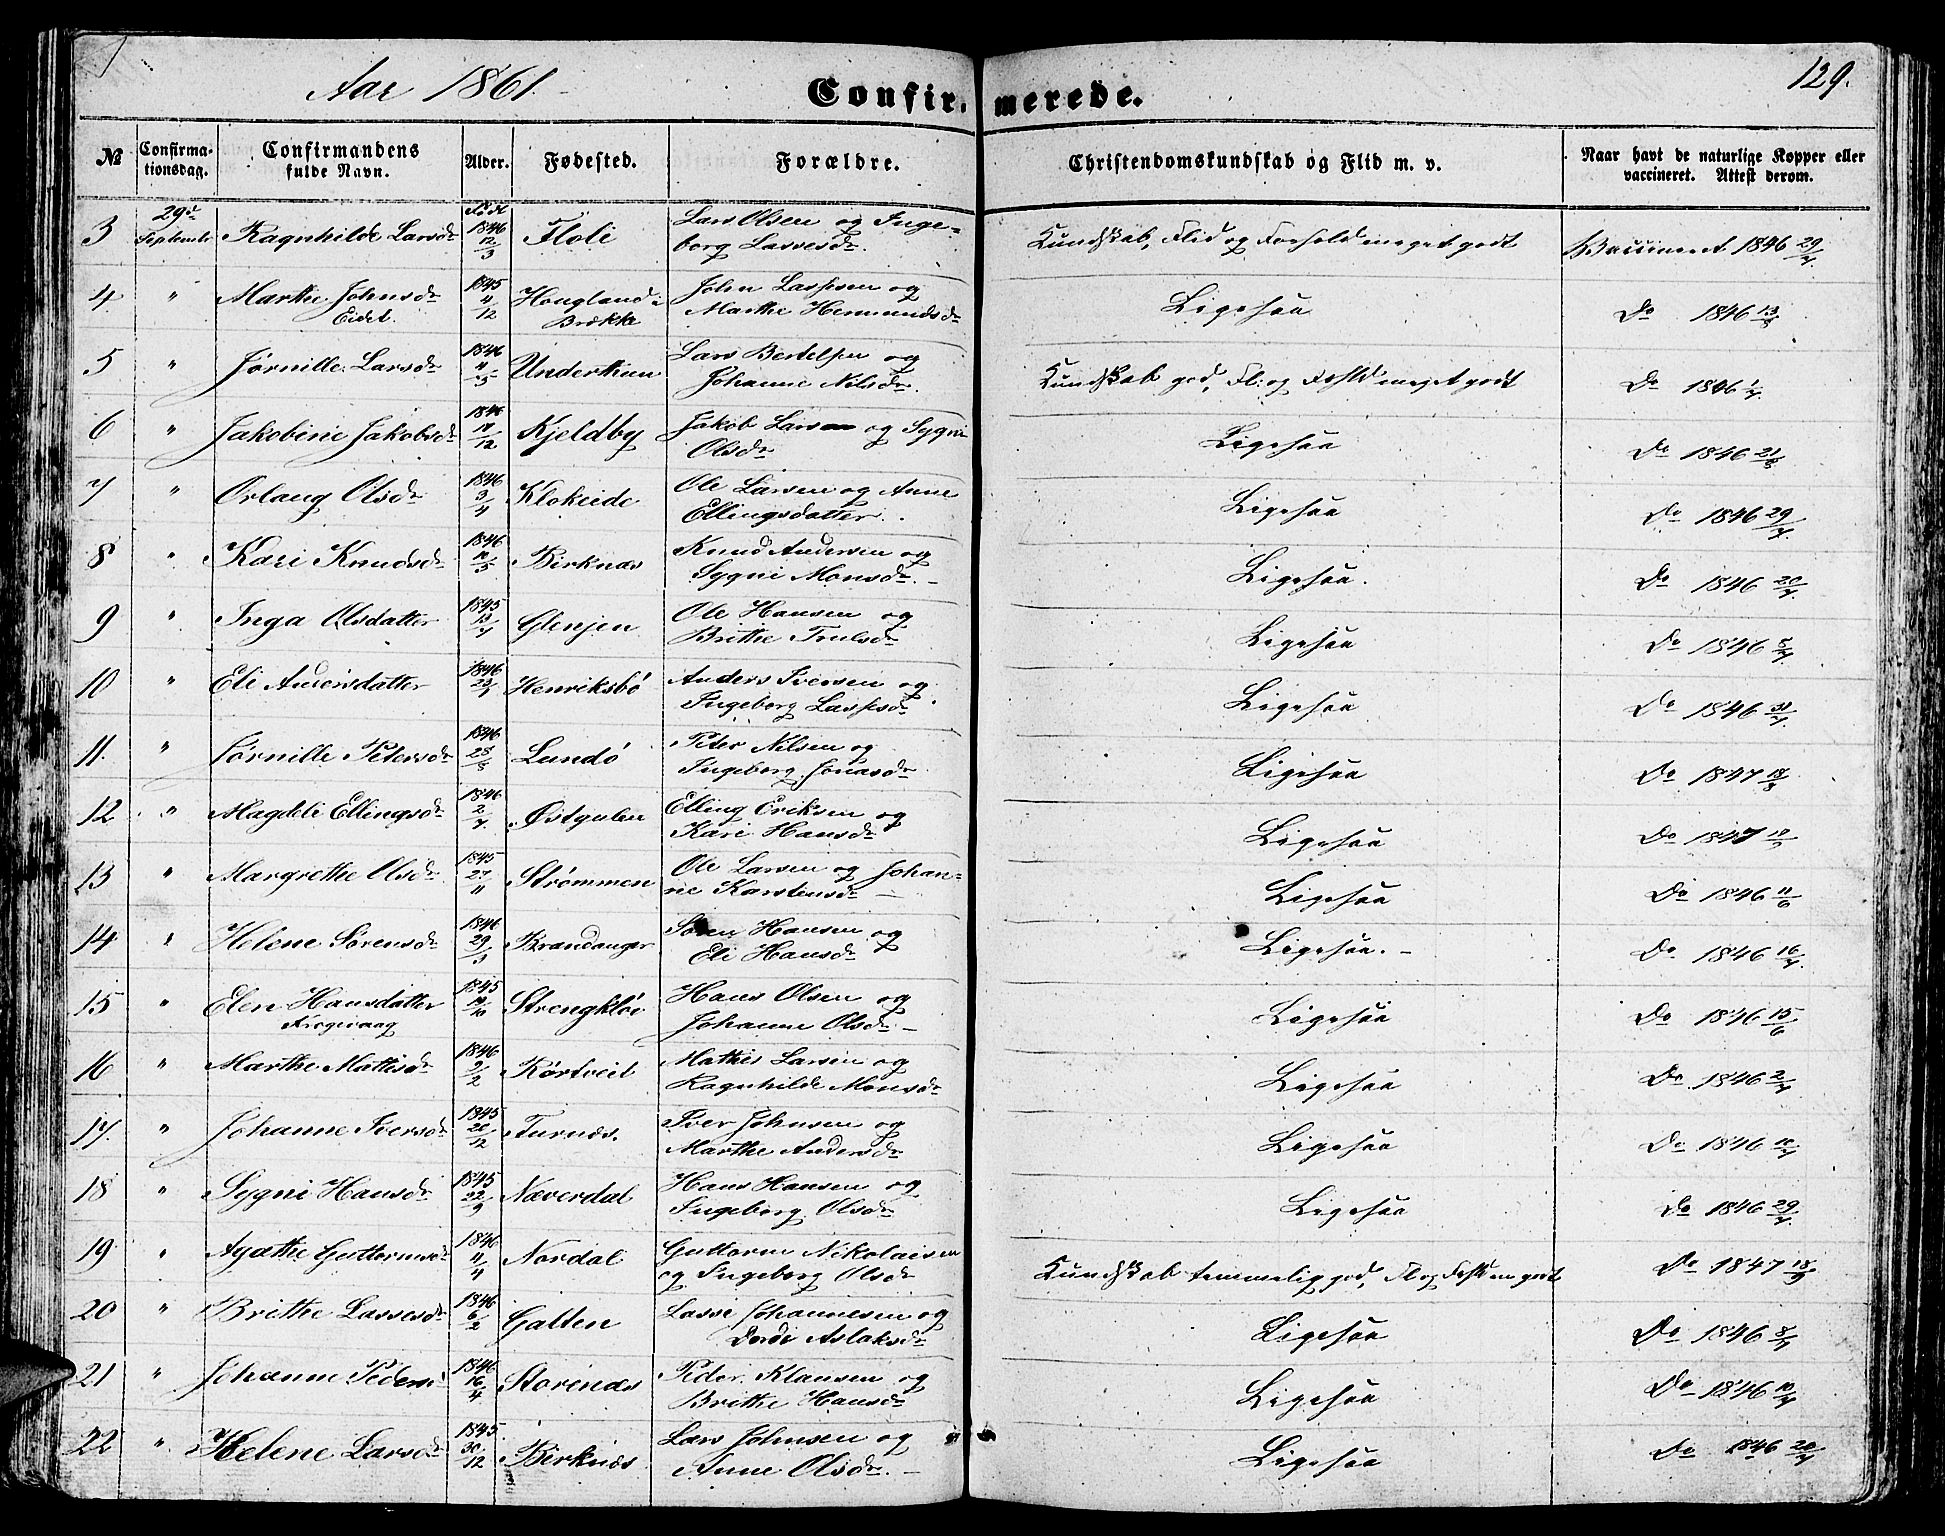 Aar 1861.
Confirmerede.
129.
№ Confirmationsdag. Confirmandens fulde Navn. Alder. Fødested. Forældre. Christendomskundskab og Flid m. v. Naar havt de naturlige Kopper eller vaccineret. Attest derom.
3 29de September Ragnhilde Larsdr Født 1846 12/3 Floli Lars Olsen og Ingeborg Lassesdr. Kundskab, Flid og Forhold meget godt Vaccineret 1846 29/7.
4 " Marthe Johnsdr Eidet 1845 4/12 Hougland Brekke John Lassesen og Marthe Hermundsdr Ligesaa Do 1846 13/8
5 " Jørnille Larsdr 1846 11/5 Underthun Lars Bertelsen og Johanne Nilsdr. Kundskab god, Fl. og Forhld meget godt Do 1846 1/7
6 " Jakobine Jakobsdr 1846 /12 Kjeldby Jakob Larsen og Sygni Olsdr Ligesaa Do 1846 21/8
7 " Orlaug Olsdr 1846 3/4 Klokeide Ole Larsen og Anne Ellingsdatter. Ligesaa Do 1846 29/7.
8 " Kari Knudsdr 1846 10/5 Birknæs Knud Andersen og Sygni Monsdr. Ligesaa. Do 1846 20/7.
9 " Inga Olsdatter 1845 13/7 Glenjen Ole Hansen og Brithe Trulsdr Ligesaa Do 1846 5/7
10 " Eli Andersdatter 1846 Henriksbø Anders Iversen og Ingeborg Lassesdr. Ligesaa Do 1846 31/7
11. " Jørnille Petersdr 1846 28/5 Lundø Peter Nilsen og Ingeborg Jonasdr Ligesaa Do 1847 18/8
12 " Magdeli Ellingsdr 1846 2/7. Østgulen Elling Eriksen og Kari Hansdr Ligesaa Do 1847
13 " Margrethe Olsdr 1845 27/11 Strømmen Ole Larsen og Johanne Karstensdr — Ligesaa Do 1846 11/6
14 " Helene Sørensdr 1846 29/3 Brandanger Søren Hansen og Eli Hansdr Ligesaa. — Do 1846 16/7.
15 " Elen Hansdatter Krogevaag 1845 19/10 Strengkløv Hans Olsen og Johanne Olsdr — Ligesaa Do 1846 15/6
16 " Marthe Mattisdr 1846 9/2 Kørtveit Mathis Larsen og Ragnhilde Monsdr Ligesaa Do 1846 2/7
17. " Johanne Iversdr 1845 20/12 Furnæs. Iver Johnsen og Marthe Andersdr Ligesaa Do 1846 10/7
18 " Sygni Hansdr 1845 22/9 Næverdal Hans Hansen og Ingeborg Olsdr Ligesaa Do 1846 29/7
19 " Agathe Guttormsdr 1846 11/4 Nordal Guttorm Nikolaisen og Ingeborg Olsdr Kundskab temmelig god, Fl. og Forhld m godt Do 1847 18/9
20 " Brithe Lassesdr 1846 6/2 Galten Lasse Johannesen og Dordi Aslaksdr Ligesaa Do 1846 8/7
21 " Johanne Pedersd 1846 16/4 Storenæs Peder Klausen og Brithe Hansdr Ligesaa Do 1846 10/7
22 " Helene Larsdr 1845. 30/12 Birknæs Lars Johnsen og Anne Olsdr. — Ligesaa Do 1846 20/7